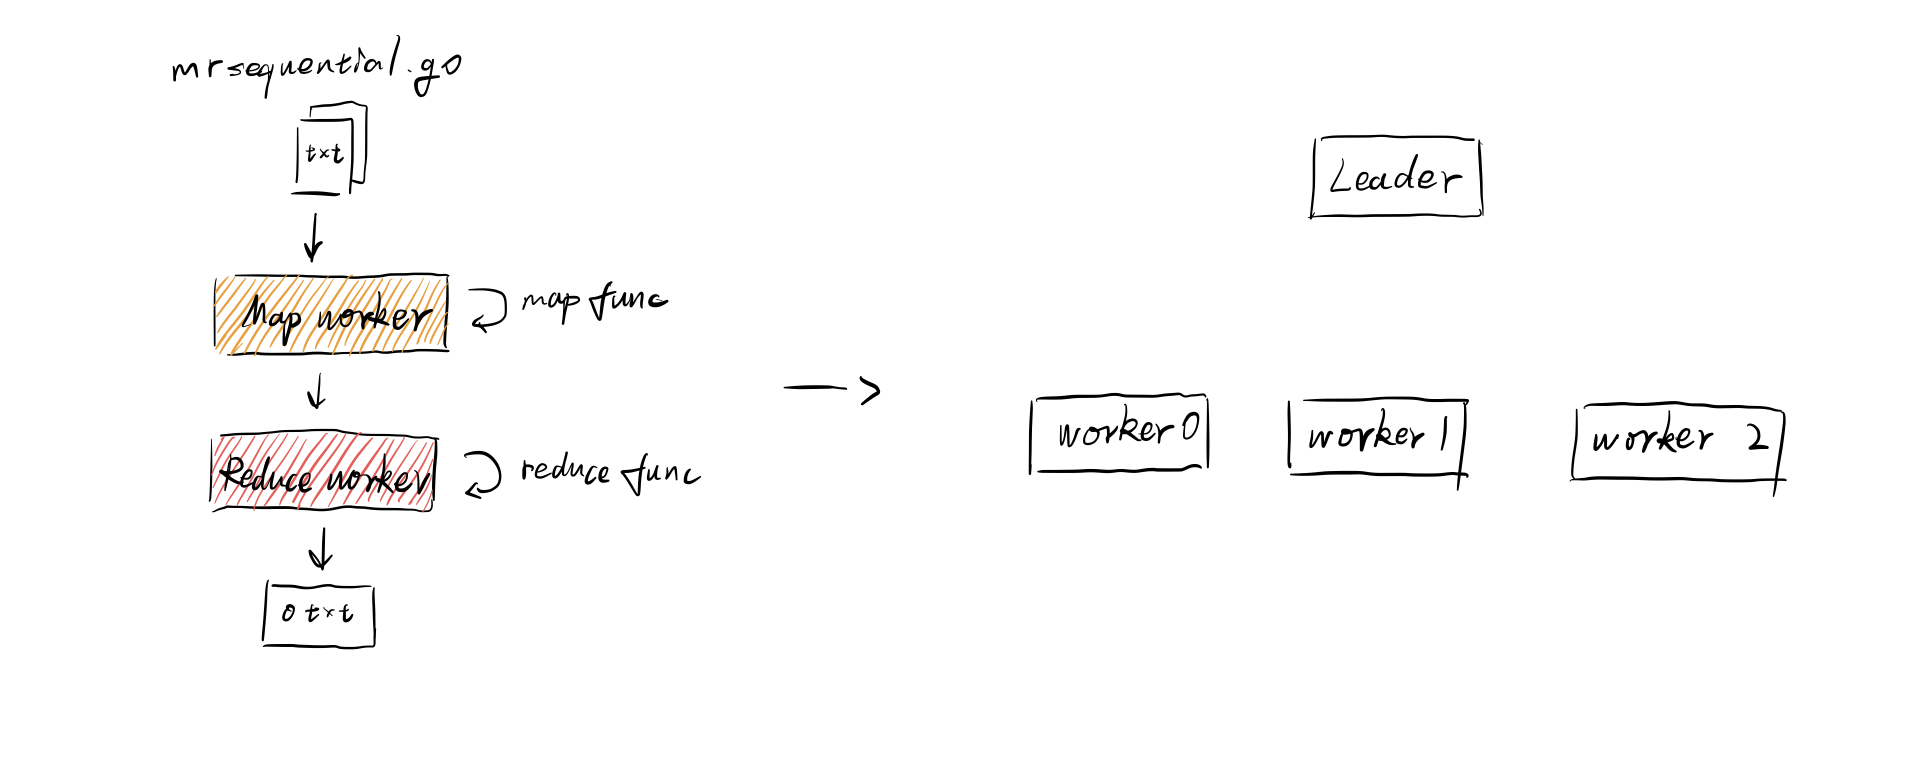 mrsequential.go
txt
Map worker
map func
Reduce worker
reduce func
0 txt
Leader
worker 0
worker 1
worker 2